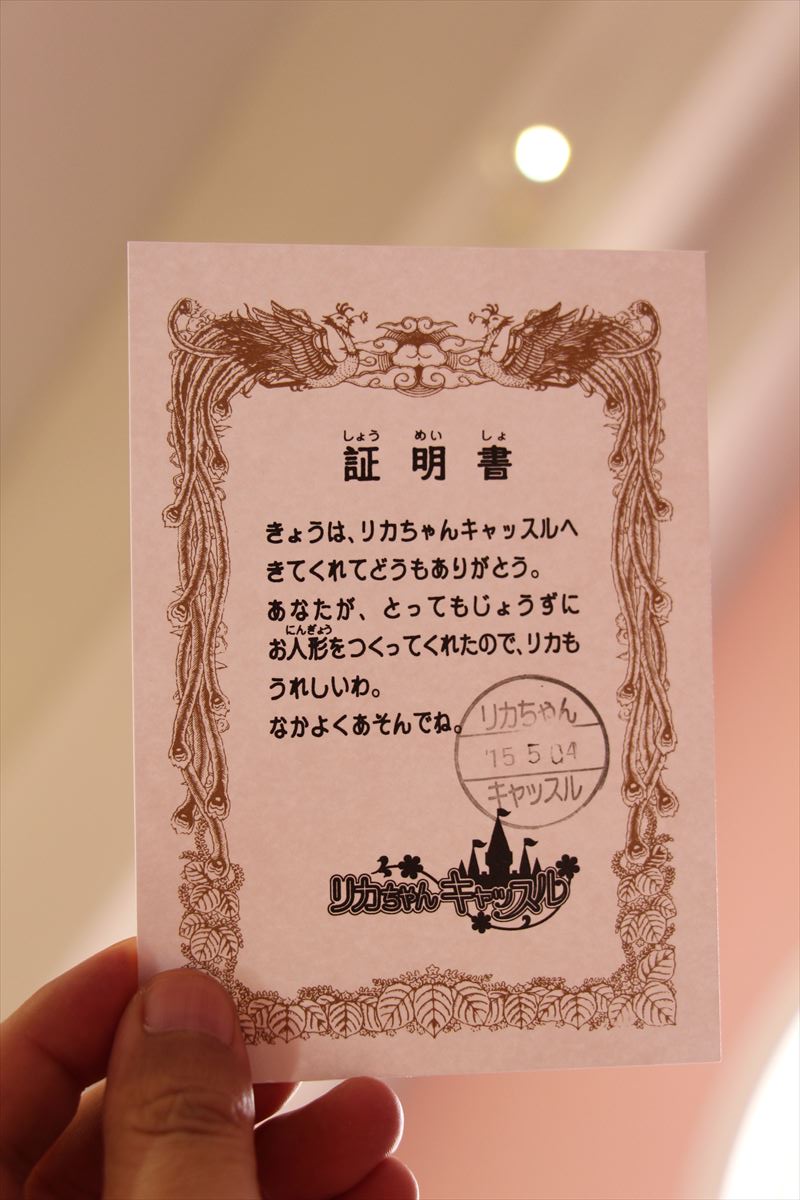 しょう めい しょ
証明書
きょうは、リカちゃんキャッスルへ
きてくれてどうもありがとう。
あなたが、とってもじょうずに
にんぎょう
お人形をつくってくれたので、リカも
うれしいわ。
なかよくあそんでね。
リカちゃん
'15 5 04
キャッスル
リカちゃんキャッスル